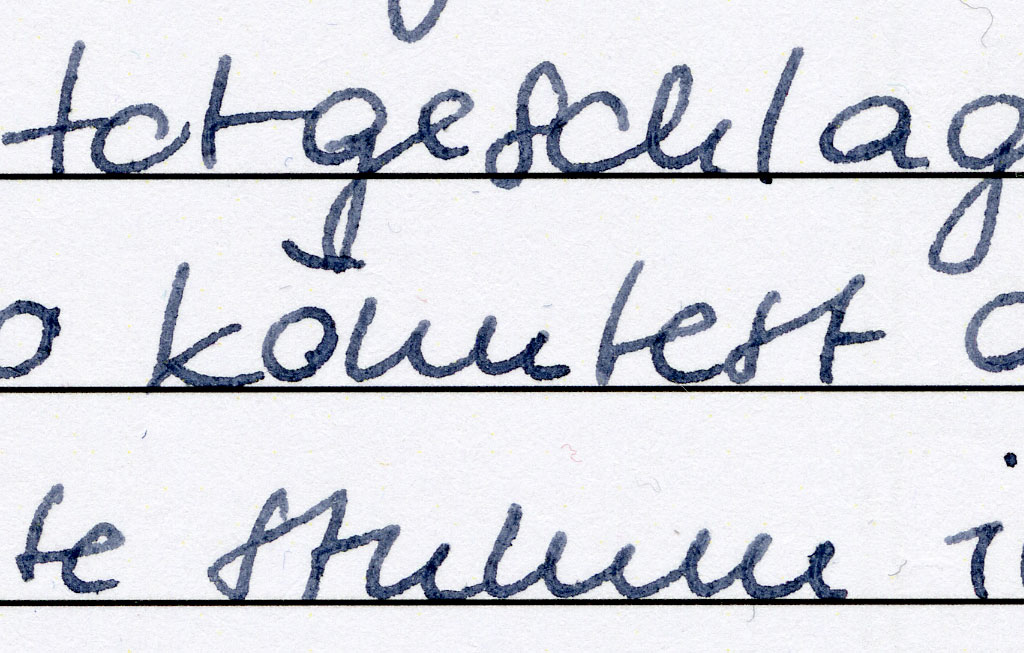 totgeschlag
o könntest d
te stumm i